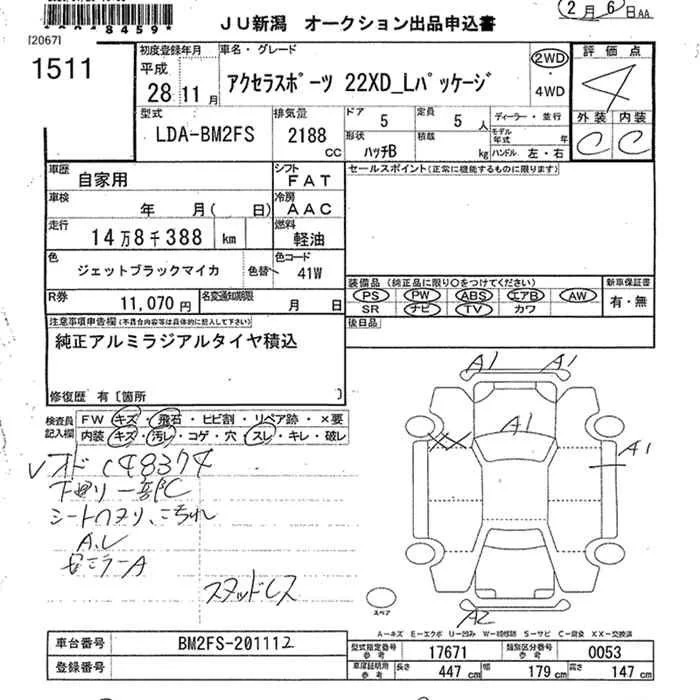 JU新潟 オークション出品申込書
2月6日AA
[2067]
1511
初度登録年月
平成
28 11月
車名・グレード
アクセラスポーツ 22XD_Lパッケージ
2WD
4WD
評価点
4
外装 内装
C C
型式
LDA-BM2FS
排気量
2188 CC
ドア
5
定員
5人
形状
ハッチB
積載
kg
ディーラー・並行
モデル年式 年
ハンドル 左・右
車歴
自家用
シフト
FAT
セールスポイント(正常に機能するものに限ります)
車検
年 月( 日)
冷房
AAC
走行
14万8千388 km
燃料
軽油
色
ジェットブラックマイカ
色替
色コード
41W
R券
11,070円
名変通知期限
月 日
装備品(純正品に限り○をつけてください)
PS PW ABS エアB AW
SR ナビ TV カワ
新車保証書
有・無
後日品
注意事項申告欄(不具合内容等は具体的に記入して下さい)
純正アルミラジアルタイヤ積込
修復歴 有〔箇所 〕
検査員記入欄
FW キズ・飛石・ヒビ割・リペア跡・×要
内装 キズ・汚レ・コゲ・穴・スレ・キレ・破レ
オド148374
下廻り一部C
A1 A1
A1
A1
A2
スタッドレス
スペア
A-キズ E-エクボ U-凹み W-補修跡 S-サビ C-腐食 XX-交換済
車台番号
BM2FS-201112
登録番号
型式指定番号参考
17671
類別区分番号参考
0053
車庫証明用参考
長さ 447cm 幅 179cm 高さ 147cm